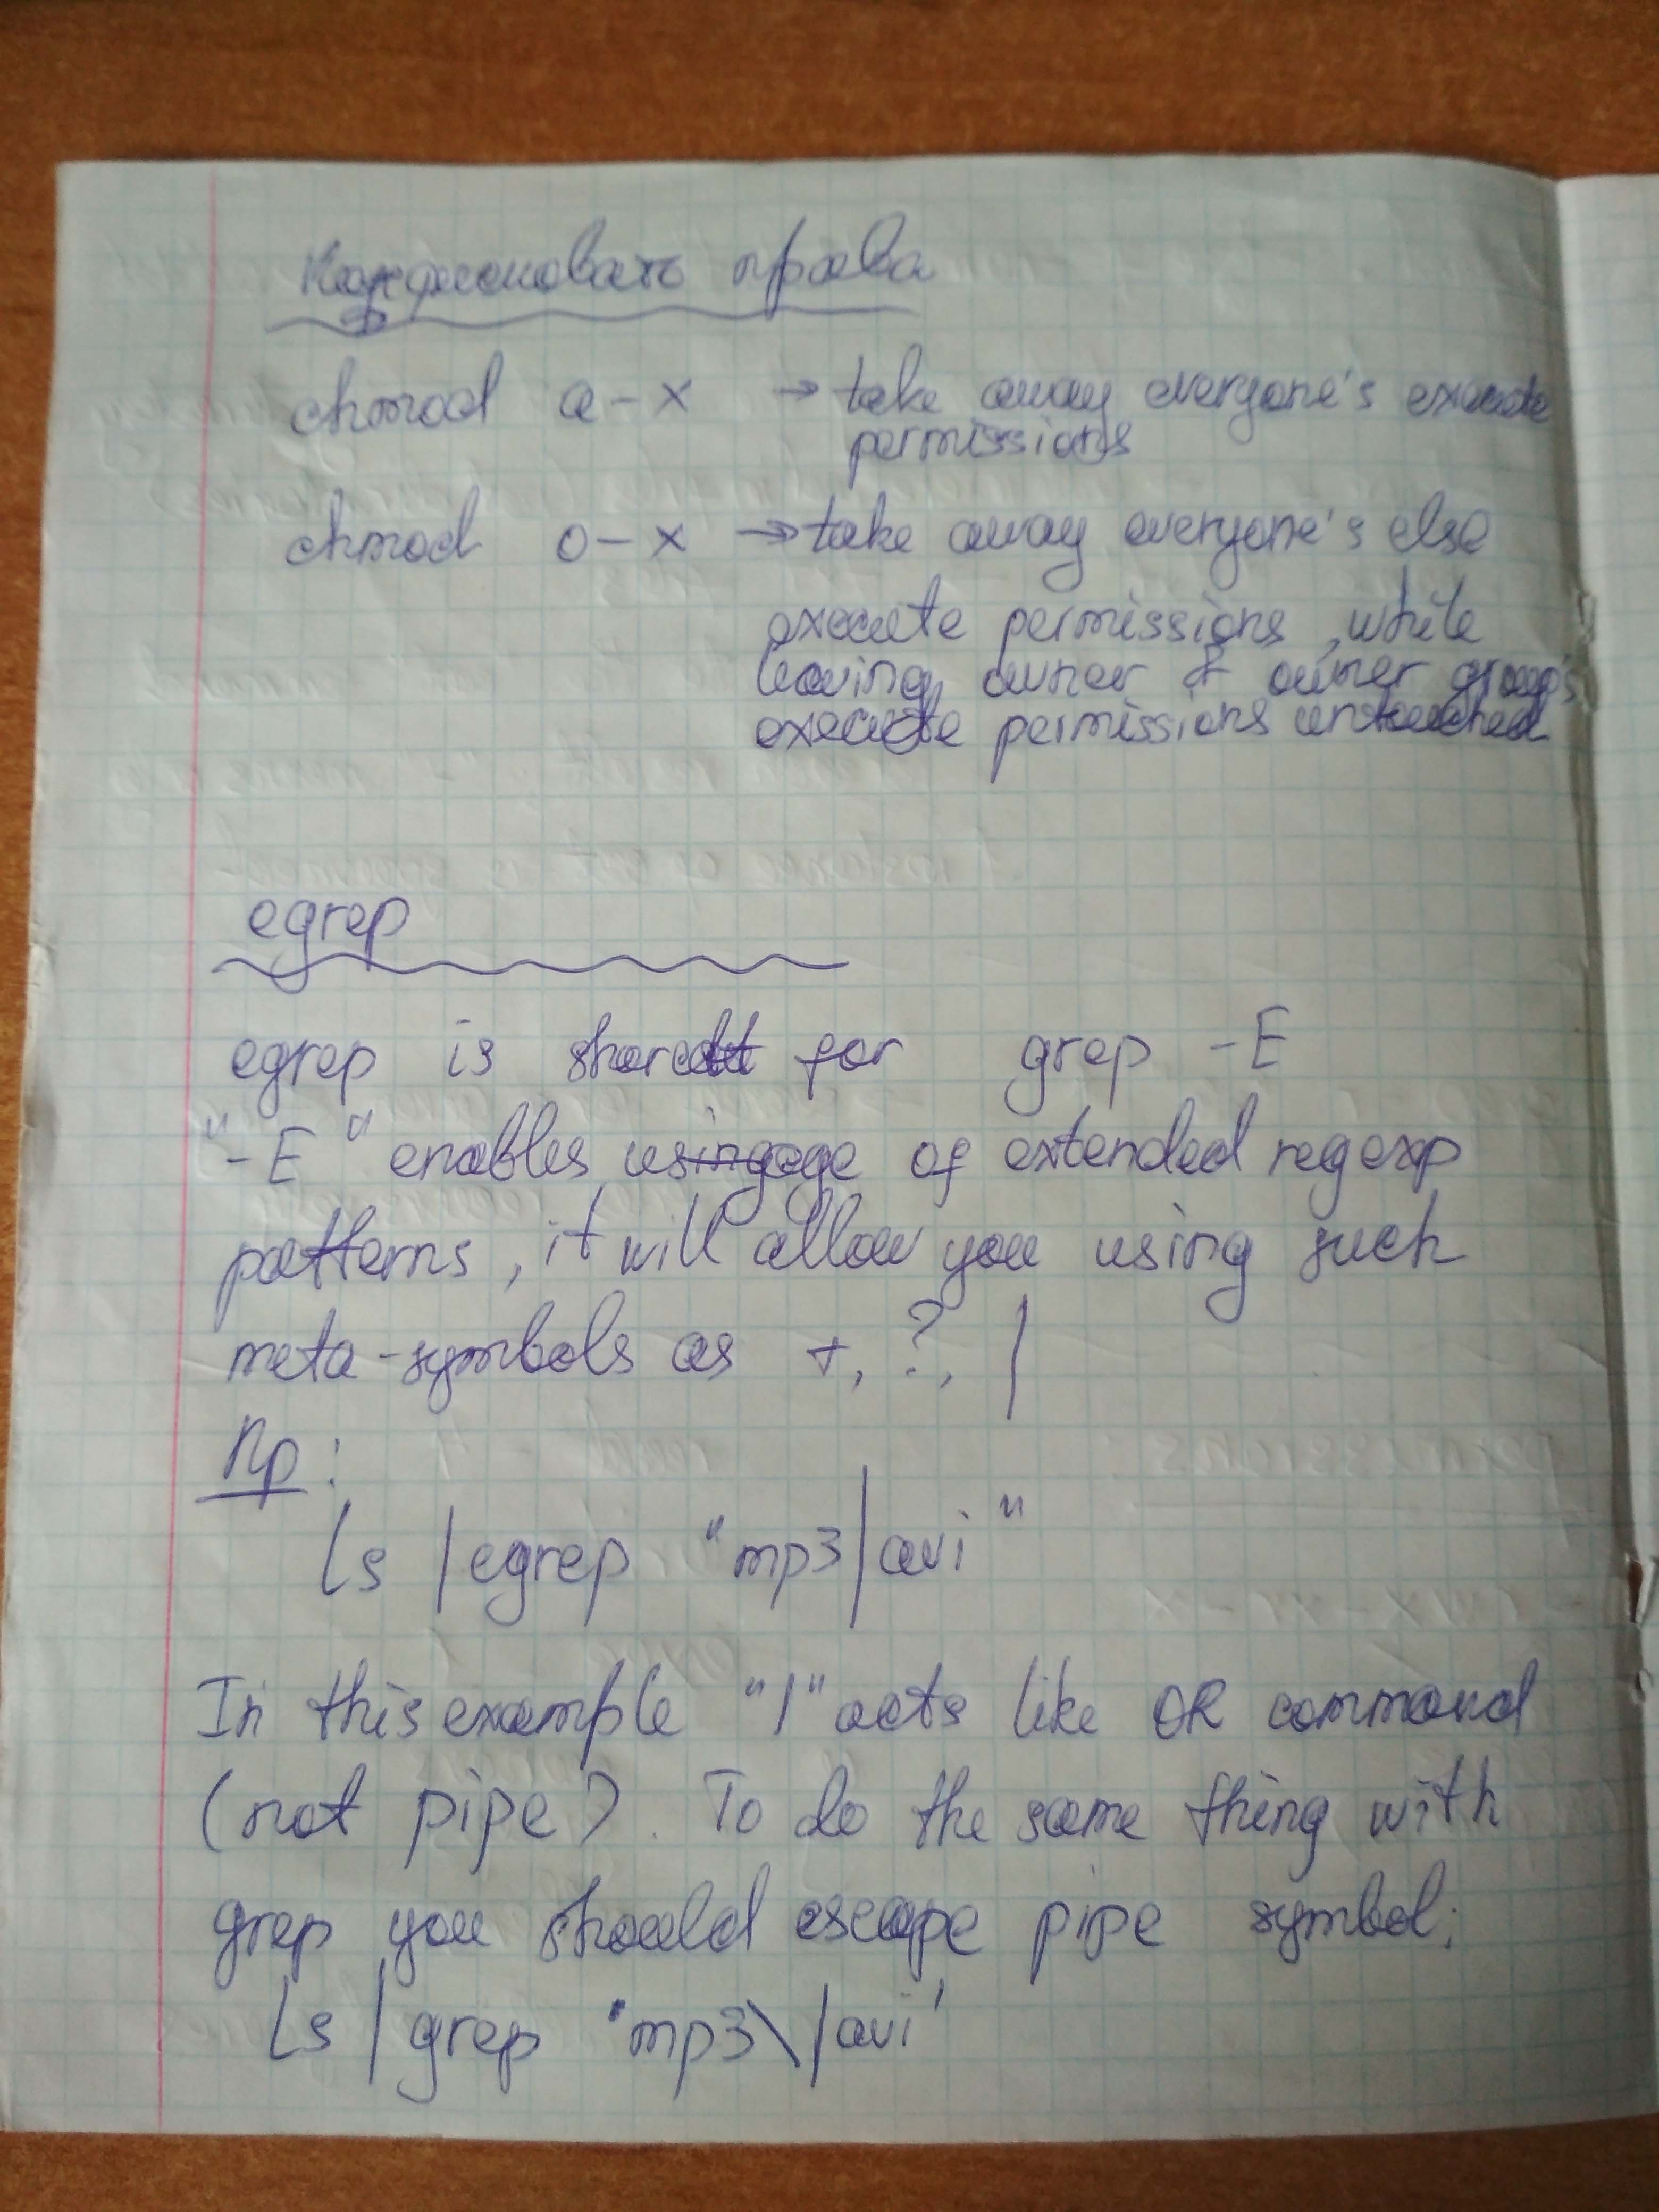 права
chmod a-x → take away everyone's execute
permissions
chmod o-x → take away everyone's else
execute permissions, while
leaving owner & owner group's
execute permissions untouched
egrep
egrep is short for grep -E
"-E" enables usage of extended regexp
patterns, it will allow you using such
meta-symbols as +, ?, |
Пр:
ls | egrep "mp3|avi"
In this example "|" acts like OR command
(not pipe). To do the same thing with
grep you should escape pipe symbol:
ls | grep 'mp3\|avi'